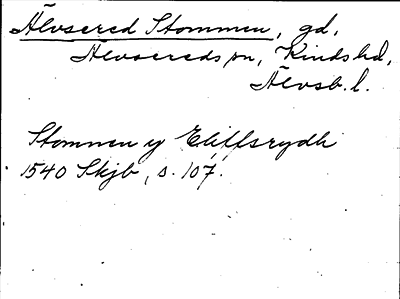 Älvsered Stommen, gd,
Älvsereds sn, Kinds hd,
Älvsb. l.
Stommen y Eliffsrydh
1540 Skjb, s. 107.